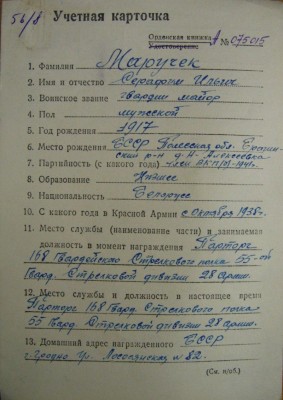 56/8
Учетная карточка
Орденская книжка А № 075015
Удостоверение
1. Фамилия Маручек
2. Имя и отчество Серафим Ильич
3. Воинское звание гвардии майор
4. Пол мужской
5. Год рождения 1917
6. Место рождения БССР Полесская обл.
р-н д. Н-Алексеевка
7. Партийность (с какого года) член ВКП/б/-1941г.
8. Образование Низшее
9. Национальность Белорусс
10. С какого года в Красной Армии с октября 1938г.
11. Место службы (наименование части) и занимаемая
должность в момент награждения Парторг
168 Гвардейского Стрелкового полка 55-ой
Гвард. Стрелковой дивизии 28 Армии.
12. Место службы и должность в настоящее время
Парторг 168 Гвард. Стрелкового полка
55 Гвард. Стрелковой дивизии 28 Армии.
13. Домашний адрес награжденного БССР
г. Гродно ул. Лососянская № 82.
(См. н/об.)